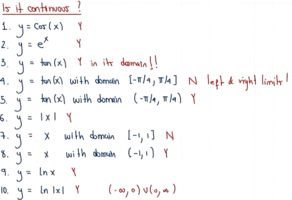 Is it continuous?
1. y = cos(x) Y
2. y = e^x Y
3. y = tan(x) Y in its domain!!
4. y = tan(x) with domain [-π/4, π/4] N left & right limits!
5. y = tan(x) with domain (-π/4, π/4) Y
6. y = |x| Y
7. y = x with domain [-1, 1] N
8. y = x with domain (-1, 1) Y
9. y = ln x Y
10. y = ln |x| Y (-∞, 0) ∪ (0, ∞)